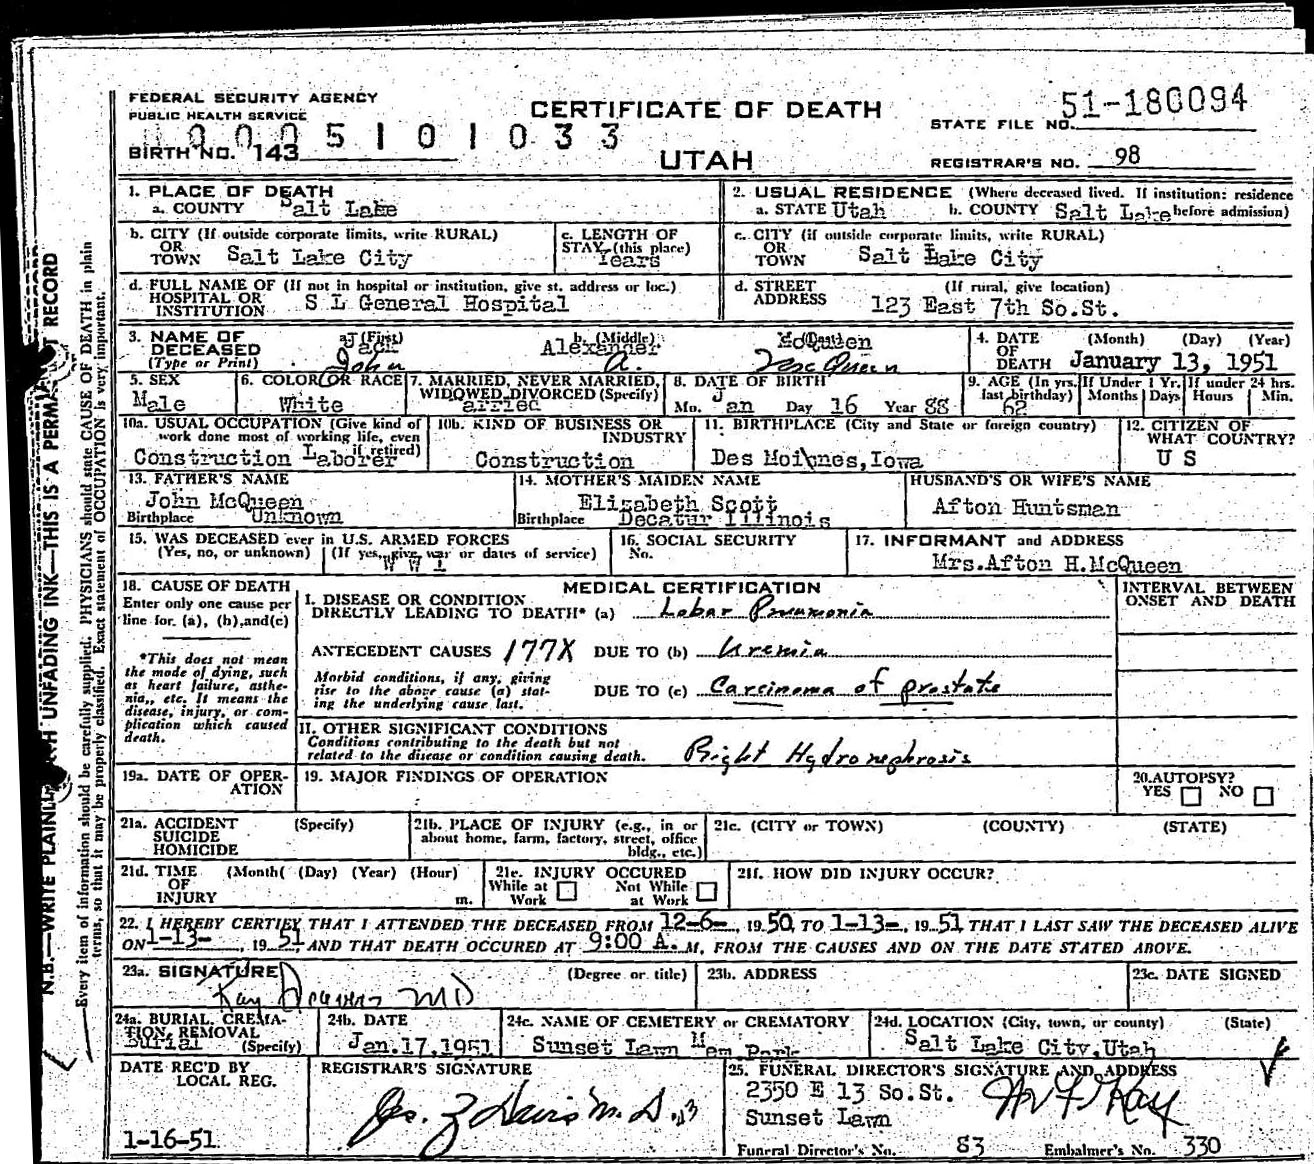 FEDERAL SECURITY AGENCY
PUBLIC HEALTH SERVICE
CERTIFICATE OF DEATH
UTAH
51-180094
STATE FILE NO.
0005101033
BIRTH NO. 143
REGISTRAR'S NO. 98
1. PLACE OF DEATH
a. COUNTY Salt Lake
2. USUAL RESIDENCE (Where deceased lived. If institution: residence
a. STATE Utah b. COUNTY Salt Lake before admission)
b. CITY (If outside corporate limits, write RURAL)
OR
TOWN Salt Lake City
c. LENGTH OF
STAY (this place)
Years
c. CITY (if outside corporate limits, write RURAL)
OR
TOWN Salt Lake City
d. FULL NAME OF (If not in hospital or institution, give st. address or loc.)
HOSPITAL OR
INSTITUTION S L General Hospital
d. STREET (If rural, give location)
ADDRESS 123 East 7th So.St.
3. NAME OF
DECEASED
(Type or Print)
a. (First) Jack
b. (Middle) Alexander
McQuien
John A. McQueen
4. DATE (Month) (Day) (Year)
OF
DEATH January 13, 1951
5. SEX
Male
6. COLOR OR RACE
White
7. MARRIED, NEVER MARRIED,
WIDOWED DIVORCED (Specify)
arried
8. DATE OF BIRTH
Mo. Jan Day 16 Year 88
9. AGE (In yrs. last birthday)
62
If Under 1 Yr.
Months Days
If under 24 hrs.
Hours Min.
10a. USUAL OCCUPATION (Give kind of
work done most of working life, even
if retired)
Construction Laborer
10b. KIND OF BUSINESS OR
INDUSTRY
Construction
11. BIRTHPLACE (City and State or foreign country)
Des Moines, Iowa
12. CITIZEN OF
WHAT COUNTRY?
U S
13. FATHER'S NAME
John McQueen
Birthplace Unknown
14. MOTHER'S MAIDEN NAME
Elizabeth Scott
Birthplace Decatur Illinois
HUSBAND'S OR WIFE'S NAME
Afton Huntsman
15. WAS DECEASED ever in U.S. ARMED FORCES
(Yes, no, or unknown) (If yes, give war or dates of service)
W W I
16. SOCIAL SECURITY
No.
17. INFORMANT and ADDRESS
Mrs.Afton H.McQueen
18. CAUSE OF DEATH
Enter only one cause per
line for. (a), (b),and(c)
*This does not mean
the mode of dying, such
as heart failure, asthe-
nia,, etc. It means the
disease, injury, or com-
plication which caused
death.
MEDICAL CERTIFICATION
I. DISEASE OR CONDITION
DIRECTLY LEADING TO DEATH* (a) Lobar Pneumonia
ANTECEDENT CAUSES 177X DUE TO (b) Uremia
Morbid conditions, if any, giving
rise to the above cause (a) stat-
ing the underlying cause last.
DUE TO (c) Carcinoma of prostate
II. OTHER SIGNIFICANT CONDITIONS
Conditions contributing to the death but not
related to the disease or condition causing death.
Right Hydronephrosis
INTERVAL BETWEEN
ONSET AND DEATH
19a. DATE OF OPER-
ATION
19. MAJOR FINDINGS OF OPERATION
20.AUTOPSY?
YES NO
21a. ACCIDENT (Specify)
SUICIDE
HOMICIDE
21b. PLACE OF INJURY (e.g., in or
about home, farm, factory, street, office
bldg., etc.)
21c. (CITY or TOWN) (COUNTY) (STATE)
21d. TIME (Month( (Day) (Year) (Hour)
OF
INJURY m.
21e. INJURY OCCURED
While at Work Not While at Work
21f. HOW DID INJURY OCCUR?
22. I HEREBY CERTIFY THAT I ATTENDED THE DECEASED FROM 12-6-, 1950 TO 1-13-, 1951 THAT I LAST SAW THE DECEASED ALIVE
ON 1-13-, 1951 AND THAT DEATH OCCURED AT 9:00 A. M, FROM THE CAUSES AND ON THE DATE STATED ABOVE.
23a. SIGNATURE (Degree or title)
Kay MD
23b. ADDRESS
23c. DATE SIGNED
24a. BURIAL, CREMA-
TION, REMOVAL
Burial (Specify)
24b. DATE
Jan.17,1951
24c. NAME OF CEMETERY or CREMATORY
Sunset Lawn Mem Park
24d. LOCATION (City, town, or county) (State)
Salt Lake City,Utah
DATE REC'D BY
LOCAL REG.
1-16-51
REGISTRAR'S SIGNATURE
25. FUNERAL DIRECTOR'S SIGNATURE AND ADDRESS
2350 E 13 So.St.
Sunset Lawn
Funeral Director's No. 83 Embalmer's No. 330
N.B.—WRITE PLAINLY UNFADING INK—THIS IS A PERMANENT RECORD
Every item of information should be carefully supplied. PHYSICIANS should state CAUSE OF DEATH in plain
terms, so that it may be properly classified. Exact statement of OCCUPATION is very important.